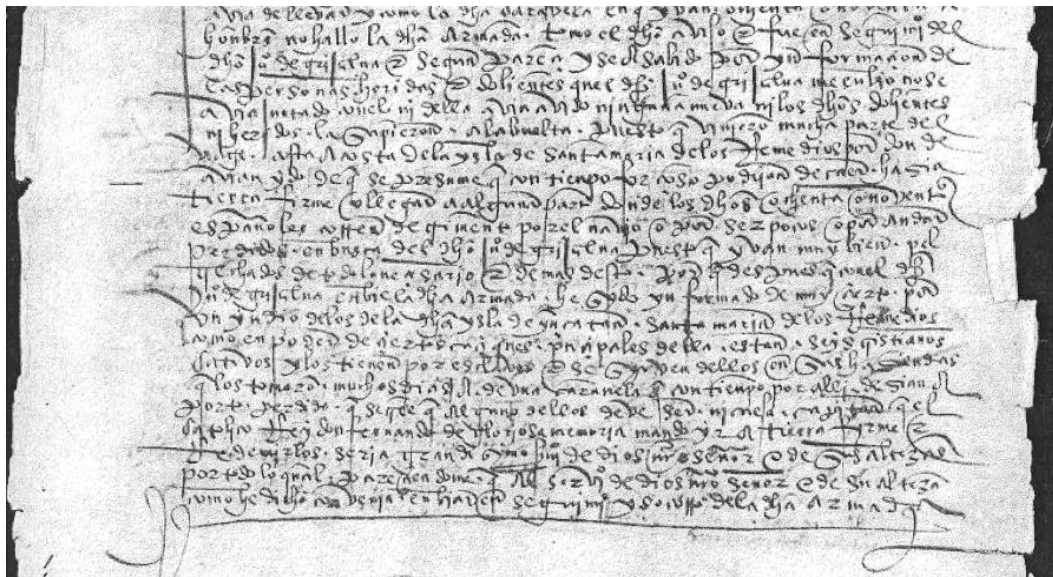 avia de llevar y como la dha caravela en q yvan ochenta o noventa
honbres no hallo la dha armada tomo el dho aviso & fue en seguimi del
dho ju de grisalva & segun pareçe y se a sabido por ynformaçion de
las personas heridas & dolientes quel dho ju de grisalva me enbio no se
a juntado conel ni della avia avido ninguna nueva ni los dhos dolientes
ni heridos la supieron ala buelta puesto q vinieron mucha parte del
viage asta a costa dela ysla de santa maria delos Remedios por donde
avian ydo de q se presume q con tienpo forçoso podrian de caer hazia
tierra firme o llegar a alguna parte donde los dhos ochenta o noventa
españoles corren detrimento por el navio o por ser pocos o por andar
perdidos en busca del dho ju de grisalva puesto q yvan muy bien
pertrechados de todo lo neçesario & demas desto por q despues q conel dho
ju de grisalva enbie la dha armada he sydo ynformado de muy çierto por
un yndio delos dela dha ysla de yucatan santa maria delos Remedios
como en poder de çiertos caçiques prinçipales della estan seis cristianos
cativos y los tienen por esclavos & se syrven dellos en sus haziendas
q los tomaron muchos dias a de una caravela q con tienpo por alli diz q
aporto perdida q se cree q alguno dellos deve ser nicuesa capitan q el
catolico Rey don fernando de gloriosa memoria mando yr a tierra firme &
redemirlos seria grandisymo serviº de dios nro señor & de sus altezas
por todo lo qual pareçiendome q al serviº de dios nro señor & de su alteza
como he dicho convenia enbiar en seguimiº y socorro dela dha armada